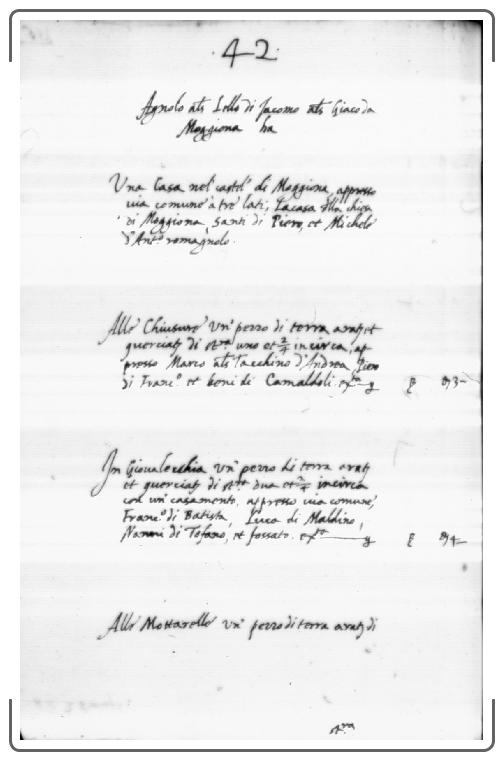 42
Agnolo als Lello di Jacomo als Giaco da
Moggiona ha
Una Casa nel castel di Moggiona, appresso
via comune à tre lati, La casa della chiesa
di Moggiona, Santi di Piero, et Michele
d'Anto romagnolo.
Alle Chiusure un pezzo di terra
querciata di uno et 2/4 in circa, ap
presso Marco als Tacchino d'Andrea, Piero
di Franco et beni di Camaldoli
In Giova Vecchia un pezzo di terra
et di dua et 2/4 in circa
con un casamento, appresso via comune,
Franco di Batista, Luca di Maldino,
Nanni di Tofano, et fossato.
Alle Mottarelle un pezzo di terra di